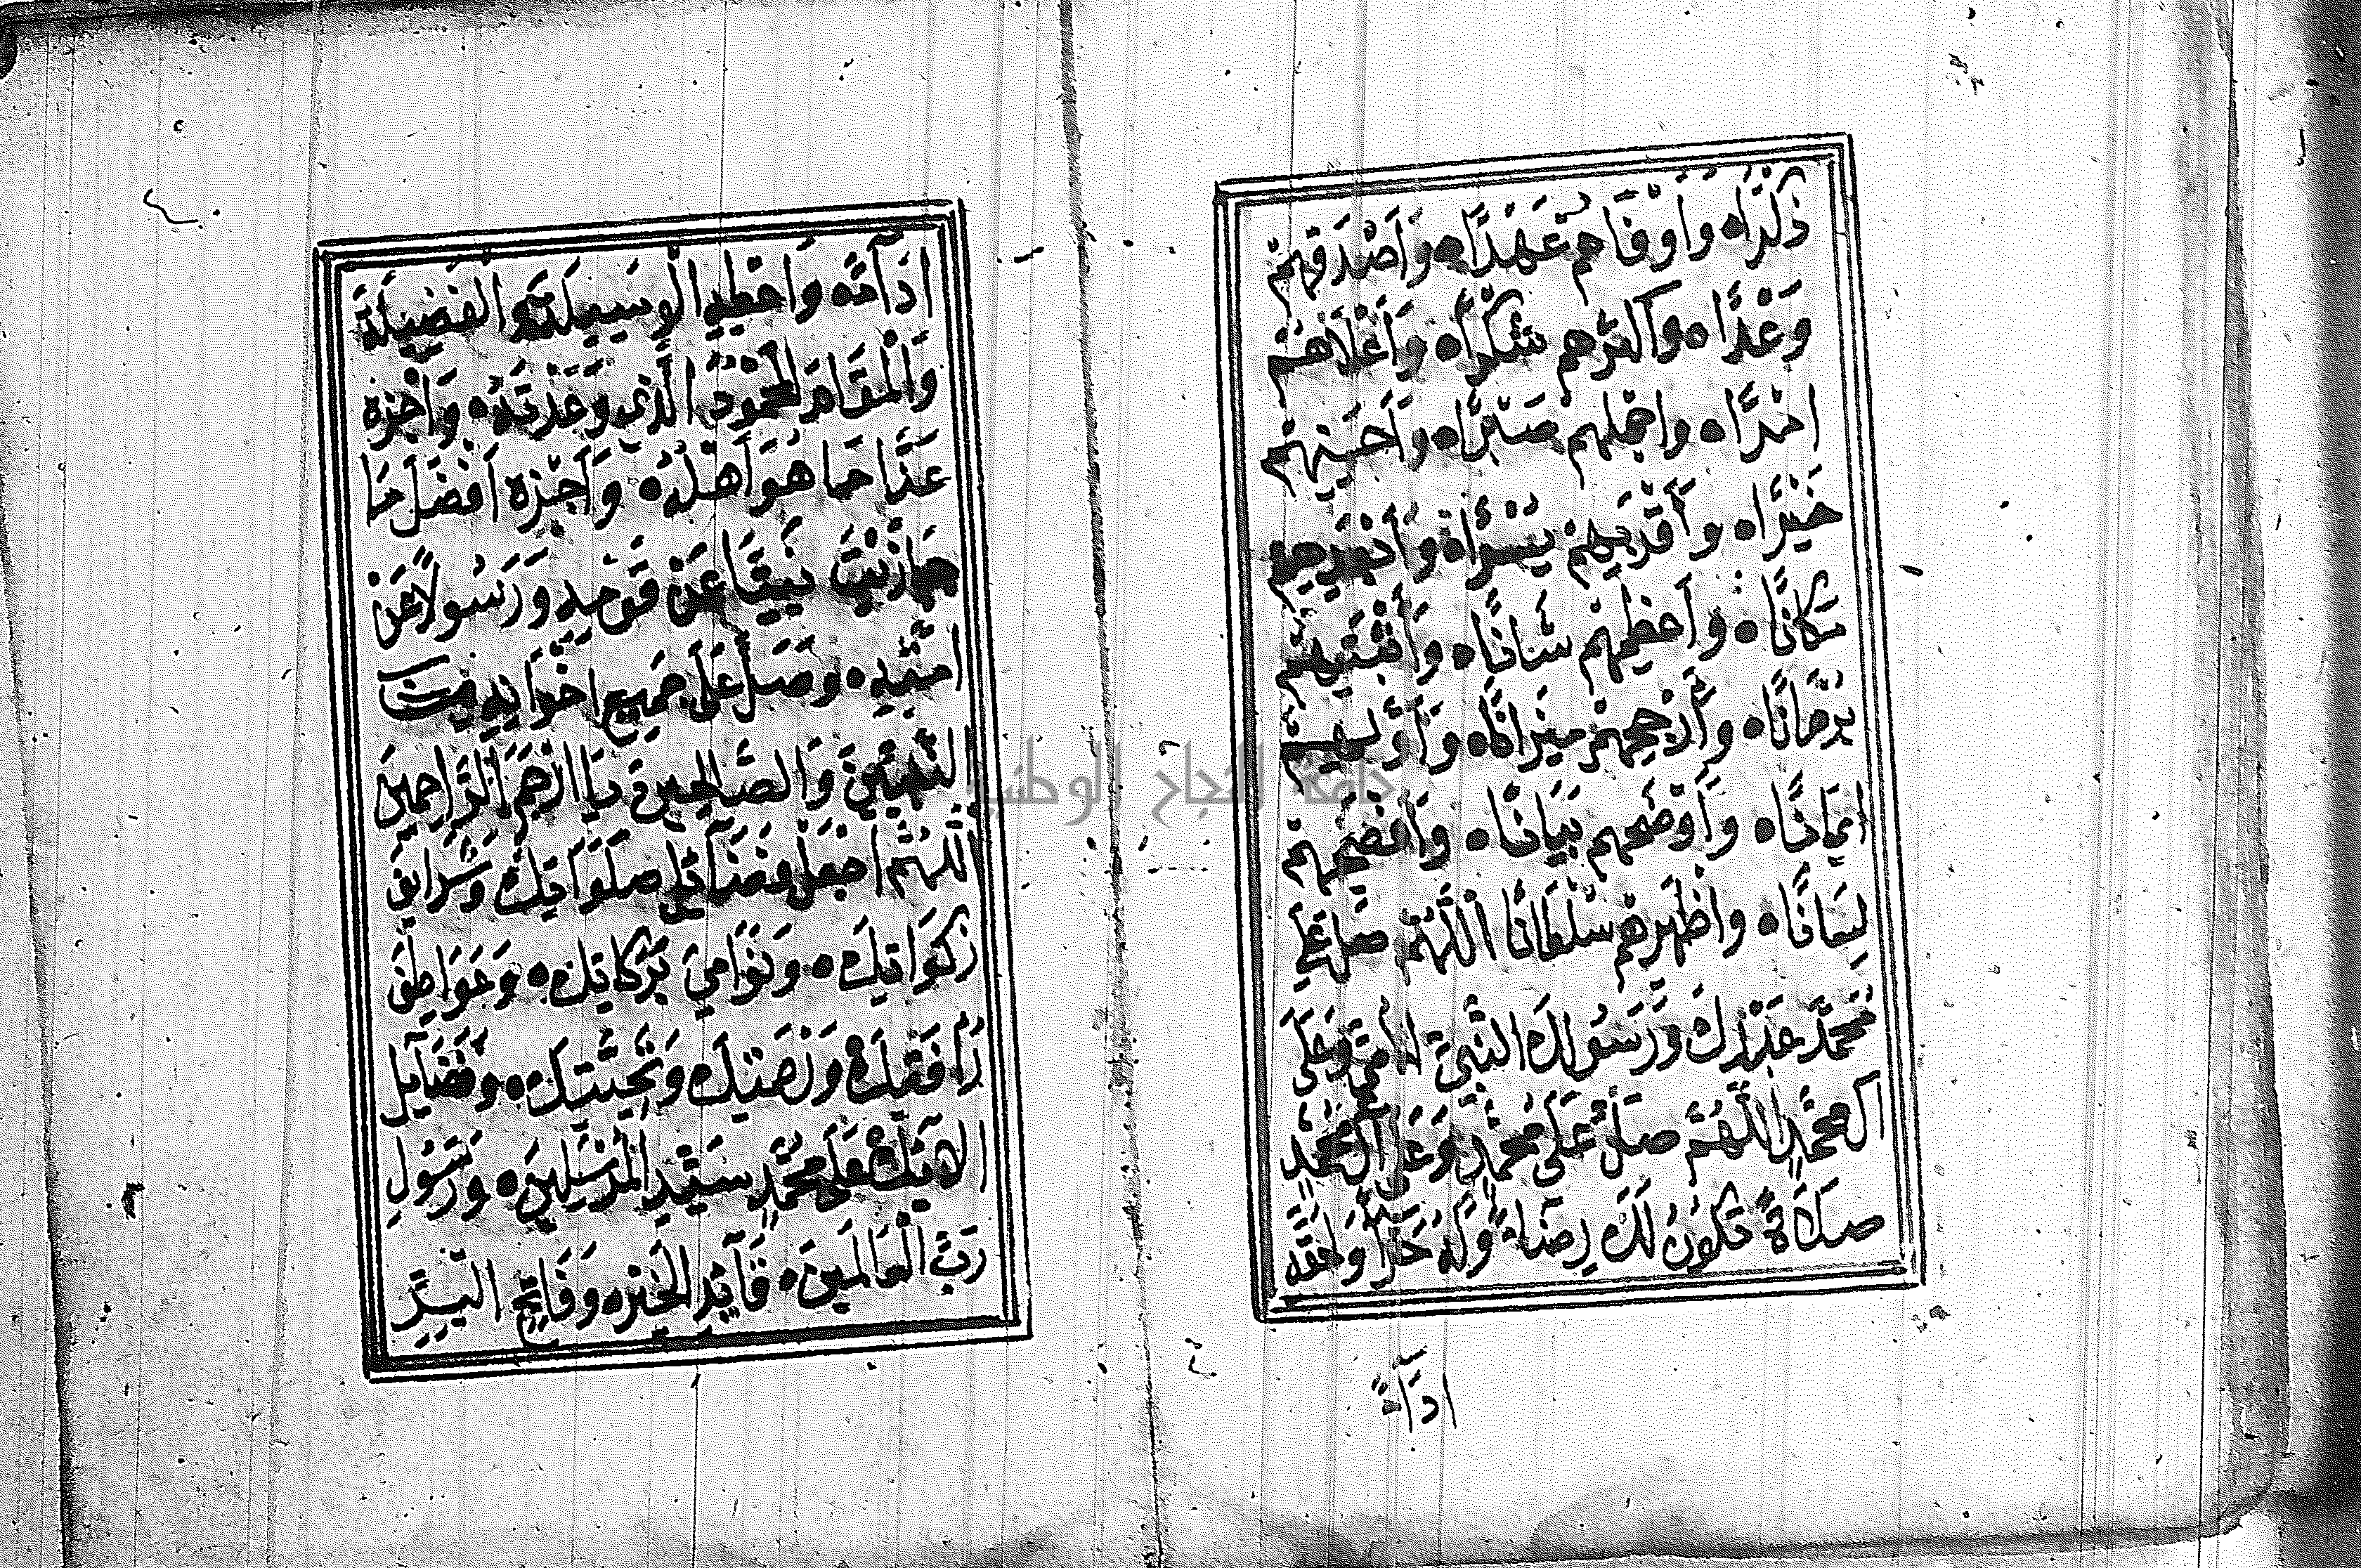 ذِكْرًا ٥ وَأَوْفَاهُمْ عَهْدًا ٥ وَأَصْدَقِهِمْ
وَعْدًا ٥ وَاكْثَرِهِم شُكْرًا ٥ وَأَعْلَاهُمْ
امْرًا ٥ وَاجْمَلِهِمْ صَبْرًا ٥ وَأَحْسَنِهِمْ
خَيْرًا ٥ وَأَقْرَبِهِمْ يُسْرًا ٥ وَأَبْعَدِهِم
مَكَانًا ٥ وَأَعْظَمِهِمْ شَانًا ٥ وَأَثْبَتِهِمْ
بُرْهَانًا ٥ وَأَرْجَحِهِمْ مِيزَانًا ٥ وَأَوَّلِهِمْ
ايمَانًا ٥ وَأَوْضَحِهِم بَيَانًا ٥ وَأَفْصَحِهِمْ
لِسَانًا ٥ وَأَظْهَرِهِمْ سُلْطَانًا اَللَّهُمَّ صَلِّ عَلَى
مُحَمَّدٍ عَبْدِكَ وَرَسُولِكَ النَّبِيِّ الامِّيِّ وَعَلَى
الِ مُحَمَّدٍ اللَّهُمَّ صَلِّ عَلَى مُحَمَّدٍ وَعَلَى آلِ مُحَمَّدٍ
صَلَاةً تَكُونُ لَكَ رِضَاءً وَلَهُ جَزَآءً وَلِحَقِّهِ
ادَآءً
ادَآءً ٥ وَأَعْطِهِ الْوَسِيلَةَ وَالْفَضِيلَةَ
وَالْمَقَامَ الْمَحْمُودَ الَّذِي وَعَدْتَهُ ٥ وَاجْزِهِ
عَنَّا مَا هُوَ أَهْلُهُ ٥ وَأَجْزِهِ اَفْضَلَ مَا
جَازَيْتَ نَبِيًّا عَنْ قَوْمِهِ وَرَسُولًا عَنْ
امَّتِهِ ٥ وَصَلِّ عَلَى جَمِيعِ اخْوَانِهِ مِنَ
النَّبِيِّينَ وَالصَّالِحِينَ يَا ارْحَمَ الرَّاحِمِينَ
اَللَّهُمَّ اجْعَلْ فَضَآئِلَ صَلَوَاتِكَ وَشَرَايِفَ
زَكَوَاتِكَ ٥ وَنَوَامِيَ بَرَكَاتِكَ ٥ وَعَوَاطِفَ
رَأْفَتِكَ وَرَحْمَتِكَ وَتَحِيَّتِكَ ٥ وَفَضَايِلَ
الايِكَ عَلَى مُحَمَّدٍ سَيِّدِ الْمُرْسَلِينَ ٥ وَرَسُولِ
رَبِّ الْعَالَمِينَ ٥ قَآئِدِ الْخَيْرِ ٥ وَفَاتِحِ الْبِرِّ
جامعة النجاح الوطنية